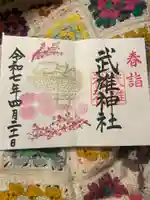 春詣
武雄神社
令和七年四月二十一日